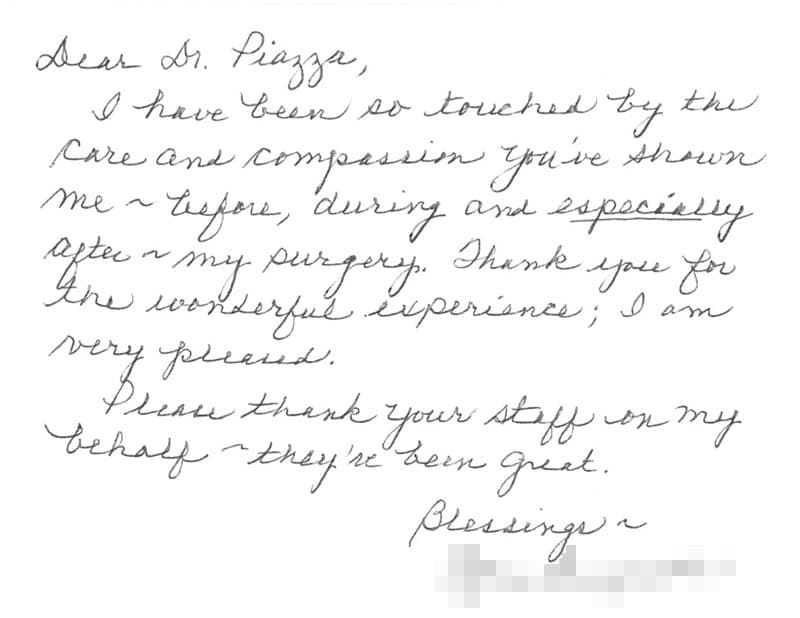 Dear Dr. Piazza,
I have been so touched by the
care and compassion you've shown
me ~ before, during and especially
after ~ my surgery. Thank you for
the wonderful experience; I am
very pleased.
Please thank your staff on my
behalf ~ they've been great.
Blessings ~